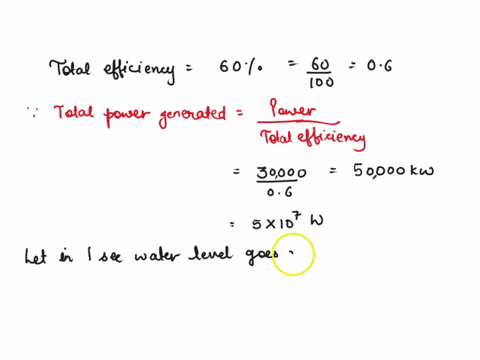 Total efficiency = 60% = 60/100 = 0.6
∵ Total power generated = Power/Total efficiency
= 30,000/0.6 = 50,000 kW
= 5 × 10⁷ W
Let in 1 sec water level goes